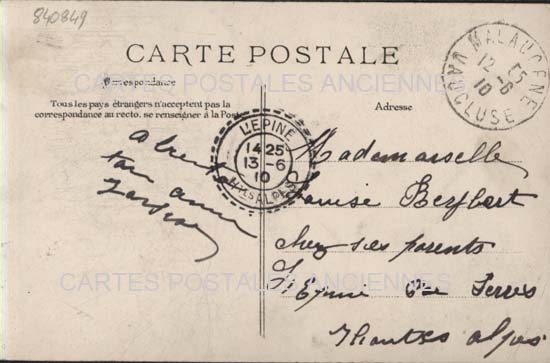 840849
CARTE POSTALE
Correspondance
Tous les pays étrangers n'acceptent pas la
correspondance au recto. se renseigner à la Poste
Adresse
MALAUCENE
12-6
10
VAUCLUSE
L'EPINE
14 25
13-6
10
HTES ALPES
a bientot
ton amie
Mademoiselle
Louise
chez ses parents
L'Epine Serres
Hautes alpes
CARTES POSTALES ANCIENNES
CARTES POSTALES ANCIENNES